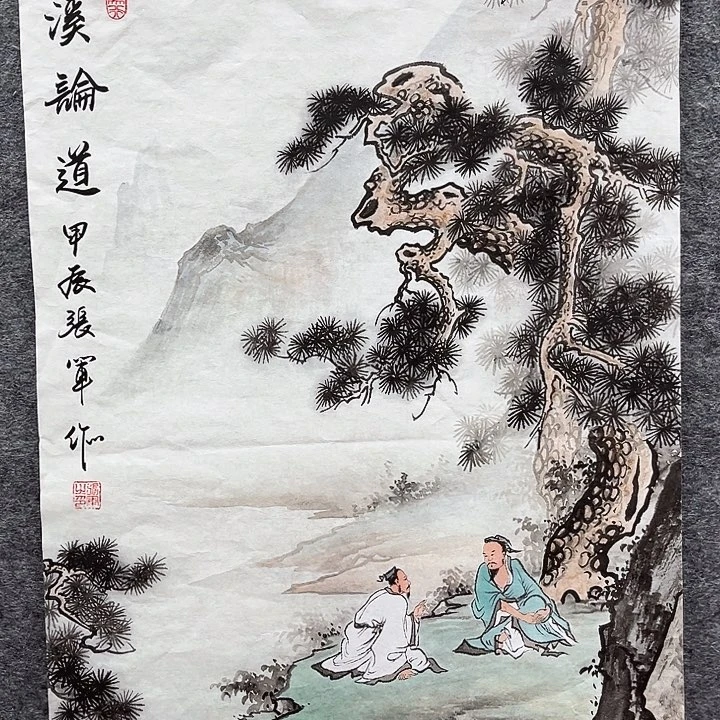 溪論道甲辰張軍作